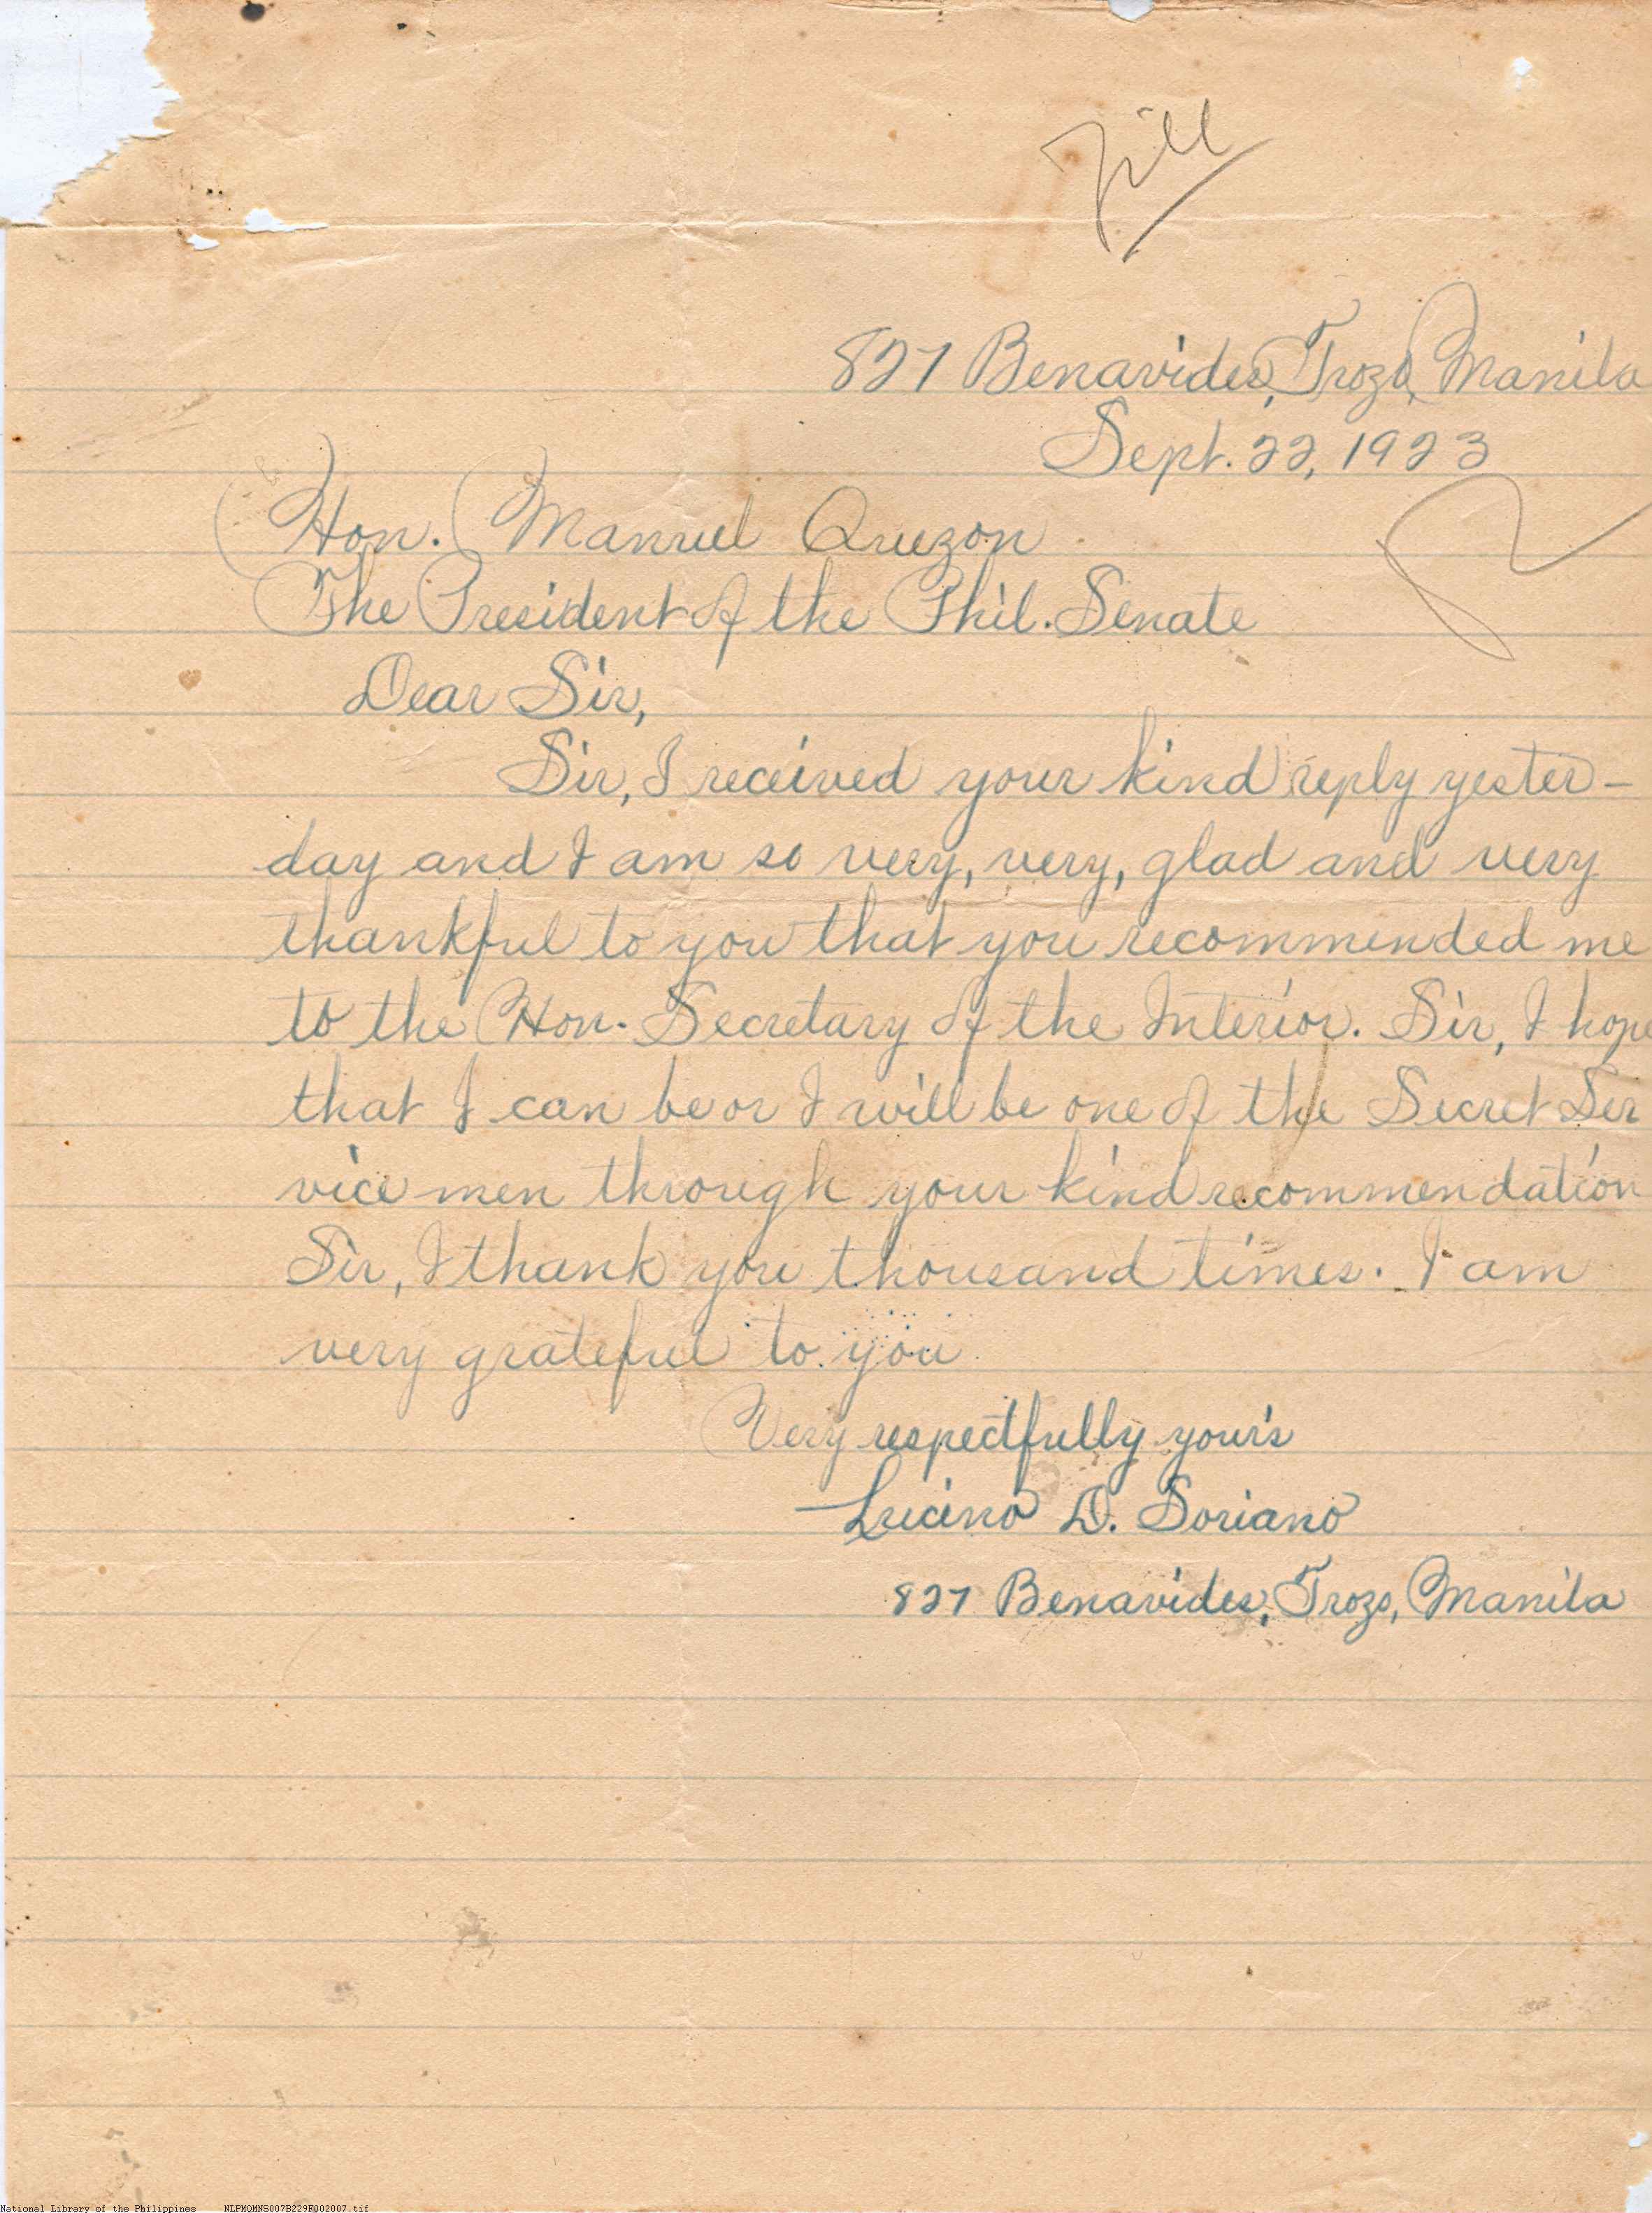 827 Benavides, Trozo, Manila
Sept. 22, 1923
Hon. Manuel Quezon
The President of the Phil. Senate
Dear Sir,
Sir, I received your kind reply yester-
day and I am so very, very, glad and very
thankful to you that you recommended me
to the Hon. Secretary of the Interior. Sir, I hope
that I can be or I will be one of the Secret Ser
vice men through your kind recommendation
Sir, I thank you thousand times. I am
very grateful to you.
Very respectfully your's
Lucino D. Soriano
827 Benavides, Trozo, Manila
National Library of the Philippines NLPMQMNS007B229F002007.tif